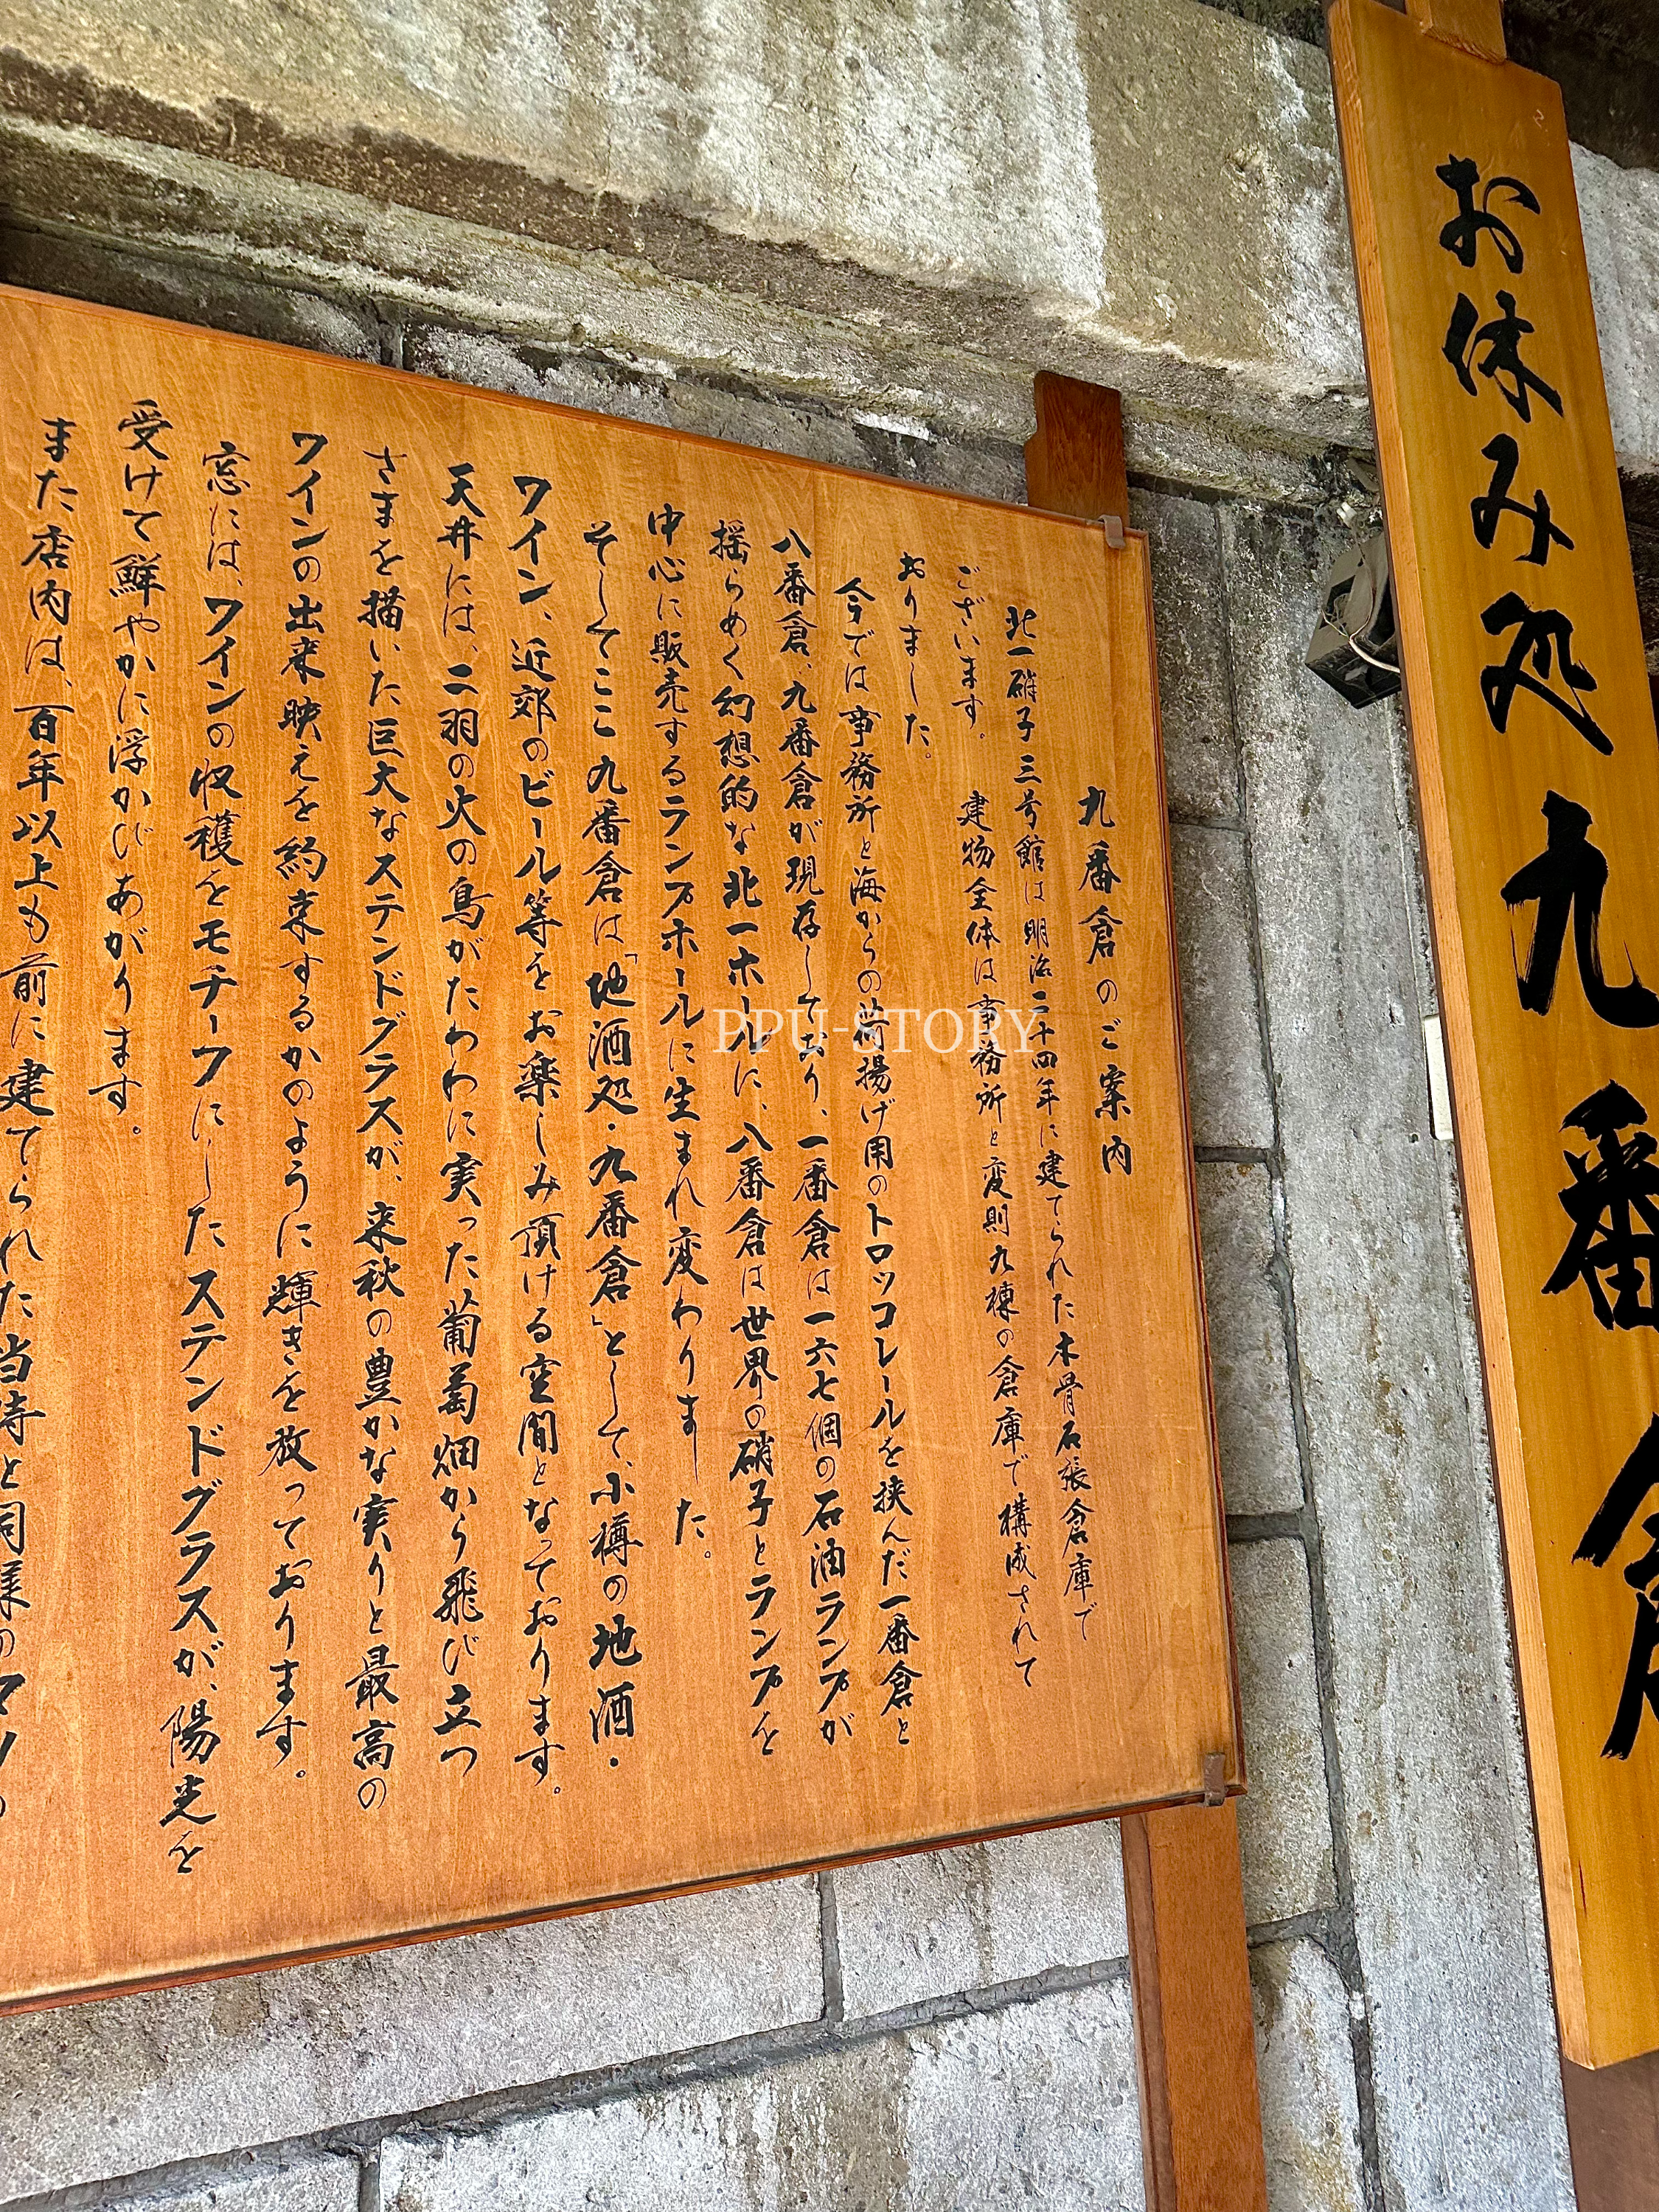 お休み処九番倉
九番倉のご案内
北一硝子三号館は明治二十四年に建てられた木骨石張倉庫で
ございます。建物全体は事務所と変則九棟の倉庫で構成されて
おりました。
今では事務所と海からの荷揚げ用のトロッコレールを挟んだ一番倉と
八番倉、九番倉が現存しており、一番倉は一六七個の石油ランプが
揺らめく幻想的な北一ホールに、八番倉は世界の硝子とランプを
中心に販売するランプホールに生まれ変わりました。
そしてここ九番倉は「地酒処・九番倉」として、小樽の地酒・
ワイン、近郊のビール等をお楽しみ頂ける空間となっております。
天井には、二羽の火の鳥がたわわに実った葡萄畑から飛び立つ
さまを描いた巨大なステンドグラスが、来秋の豊かな実りと最高の
ワインの出来映えを約束するかのように輝きを放っております。
窓には、ワインの収穫をモチーフにしたステンドグラスが、陽光を
受けて鮮やかに浮かびあがります。
また店内は、百年以上も前に建てられた当時と同様の
PPU-STORY